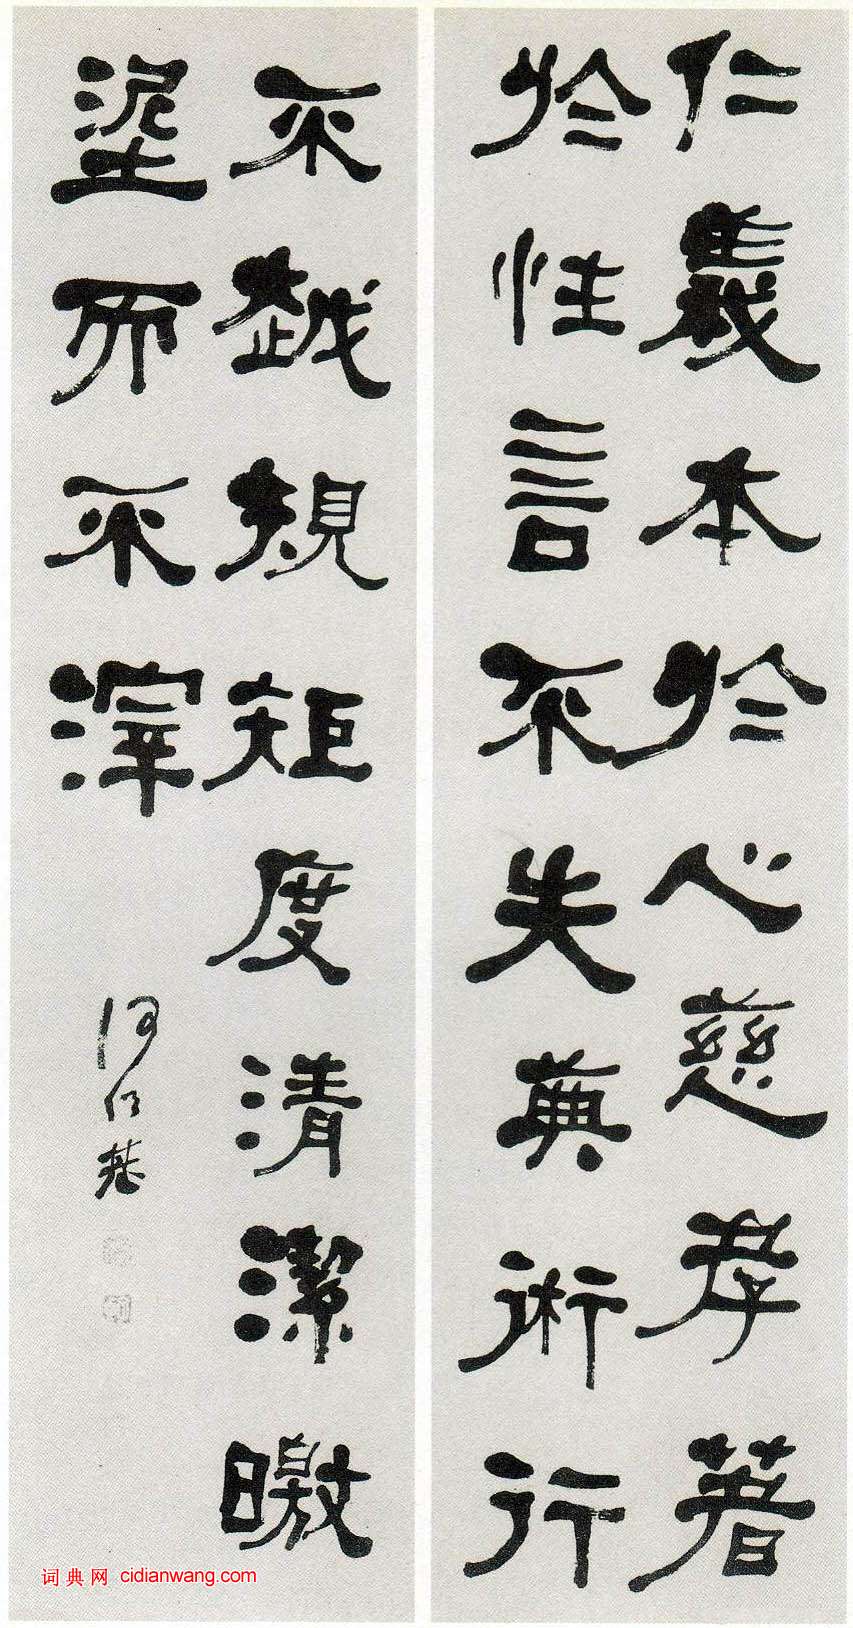 仁義本於心慈孝著
於性言不失典術行
不越規矩度清潔曒
埿而不滓
何紹基
词典网 cidianwang.com